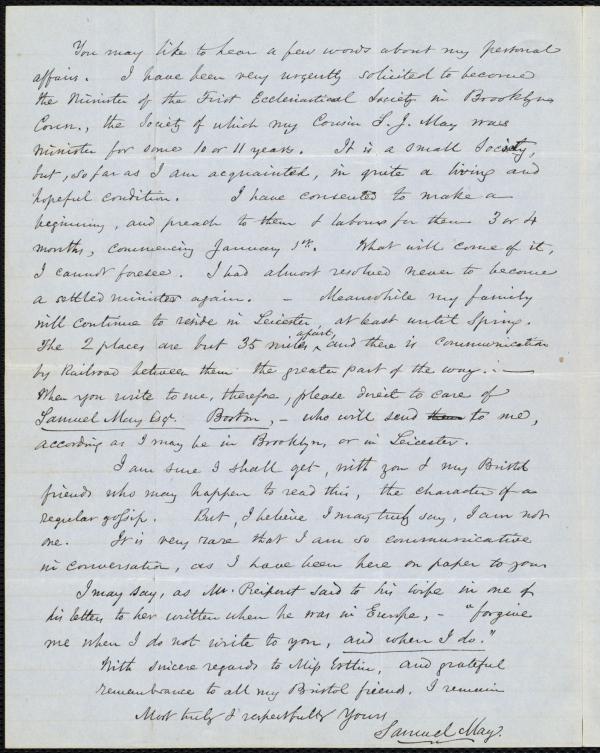 You may like to hear a few words about my personal
affairs. I have been very urgently solicited to become
the Minister of the First Ecclesiastical Society in Brooklyn
Conn., the Society of which my Cousin S. J. May was
minister for some 10 or 11 years. It is a small Society,
but, so far as I am acquainted, in quite a living and
hopeful condition. I have consented to make a
beginning, and preach to them & labour for them 3 or 4
months, commencing January 1st. What will come of it,
I cannot foresee. I had almost resolved never to become
a settled minister again. – Meanwhile my family
will continue to reside in Leicester, at least until Spring.
The 2 places are but 35 miles apart, and there is communication
by Railroad between them the greater part of the way. –
When you write to me, therefore, please direct to care of
Samuel May Esqr. Boston, – who will send them to me,
according as I may be in Brooklyn, or in Leicester.
I am sure I shall get, with you & my Bristol
friends who may happen to read this, the character of a
regular gossip. But, I believe I may truly say, I am not
one. It is very rare that I am so communicative
in conversation, as I have been here on paper to you
I may say, as Mr. Peirpont said to his wife in one of
his letters to her written when he was in Europe, – "forgive
me when I do not write to you, and when I do."
With sincere regards to Miss Estlin, and grateful
remembrance to all my Bristol friends, I remain
Most truly & respectfully Yours
Samuel May.